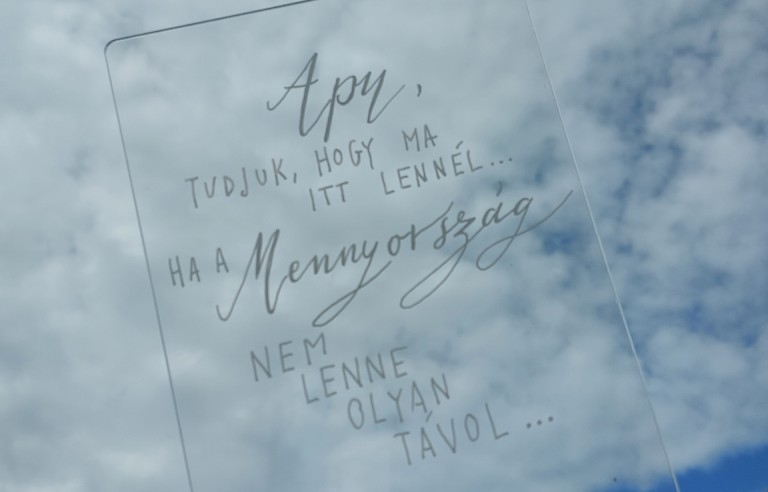 Apy,
TUDJUK, HOGY MA
ITT LENNÉL...
HA A Mennyország
NEM
LENNE
OLYAN
TÁVOL...